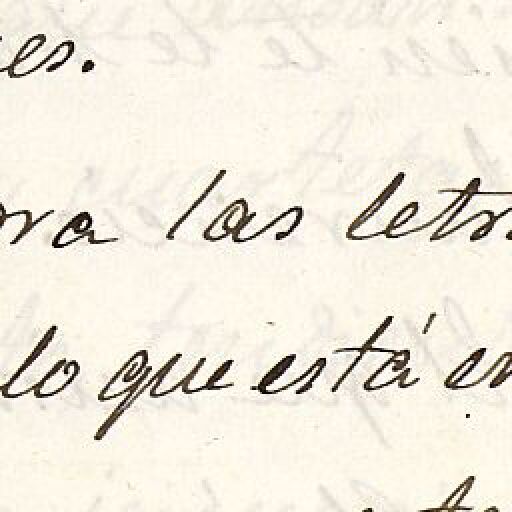 es.
ora las letr
lo que está en